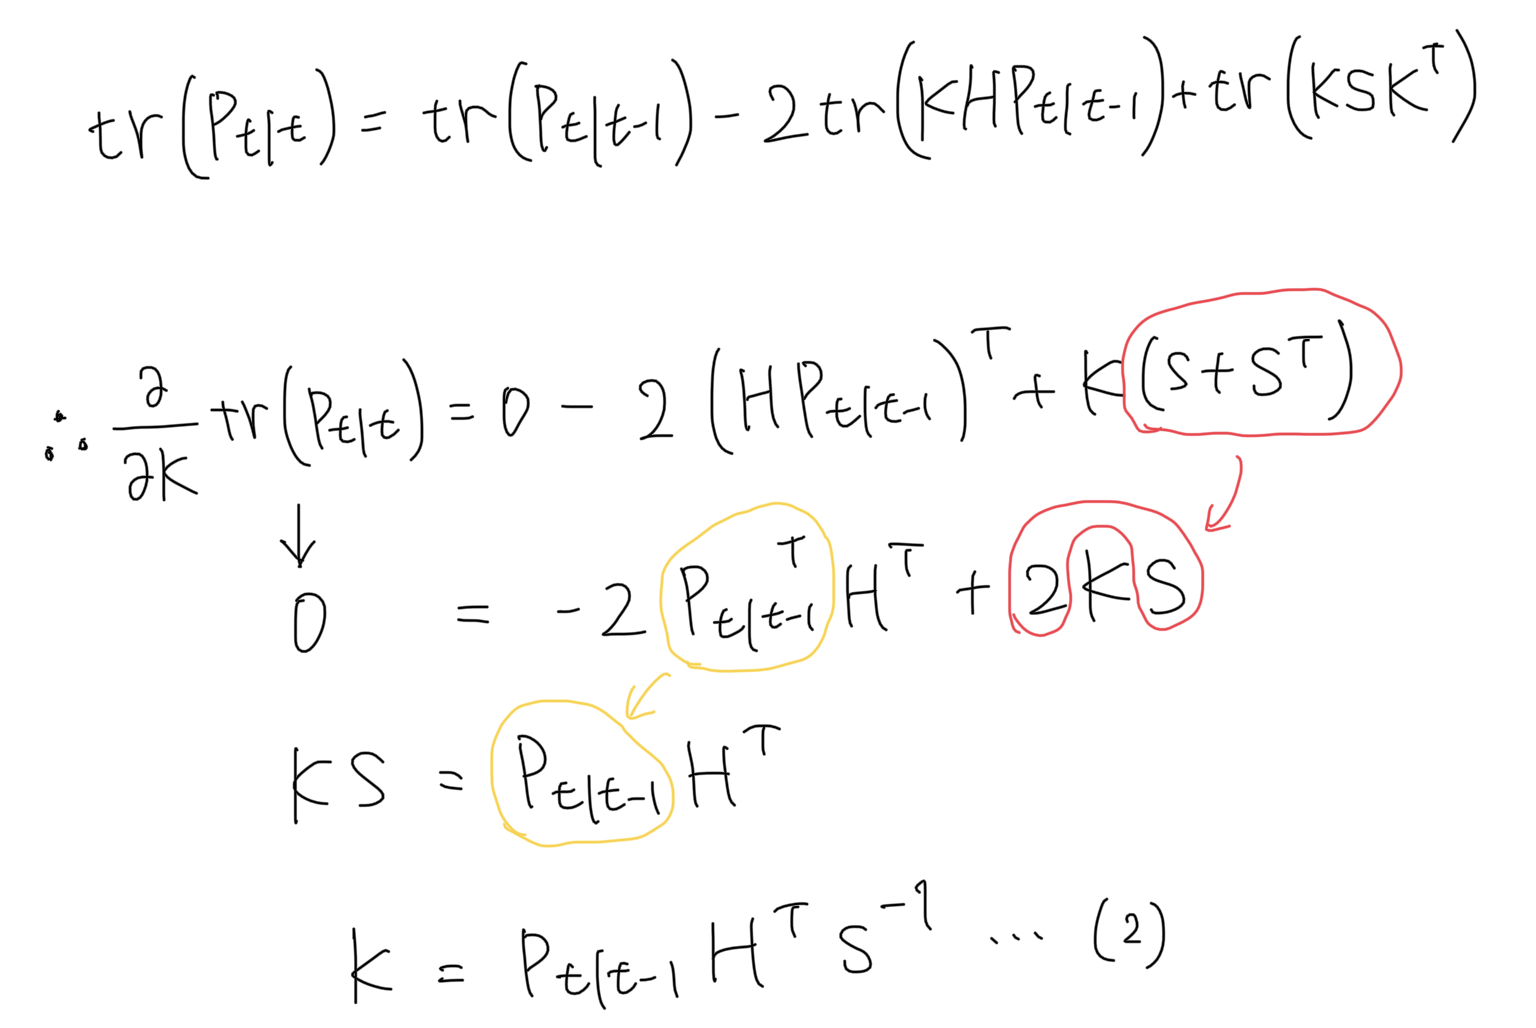 tr(P_{t|t}) = tr(P_{t|t-1}) - 2tr(KHP_{t|t-1}) + tr(KSK^T)
∴ ∂/∂K tr(P_{t|t}) = 0 - 2(HP_{t|t-1})^T + K(S+S^T)
↓
0 = -2P_{t|t-1}^T H^T + 2KS
KS = P_{t|t-1} H^T
K = P_{t|t-1} H^T S^{-1} ... (2)